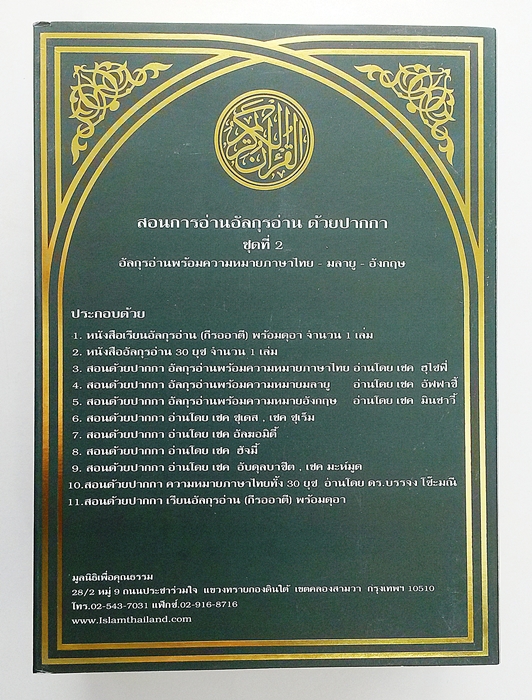 القرآن الكريم
สอนการอ่านอัลกุรอ่าน ด้วยปากกา
ชุดที่ 2
อัลกุรอ่านพร้อมความหมายภาษาไทย - มลายู - อังกฤษ
ประกอบด้วย
1. หนังสือเรียนอัลกุรอ่าน (กีรออาตี) พร้อมดุอา จำนวน 1 เล่ม
2. หนังสืออัลกุรอ่าน 30 ยุซ จำนวน 1 เล่ม
3. สอนด้วยปากกา อัลกุรอ่านพร้อมความหมายภาษาไทย อ่านโดย เชค ฮุไซฟี่
4. สอนด้วยปากกา อัลกุรอ่านพร้อมความหมายมลายู อ่านโดย เชค อัฟฟาซี้
5. สอนด้วยปากกา อัลกุรอ่านพร้อมความหมายอังกฤษ อ่านโดย เชค มินชาวี้
6. สอนด้วยปากกา อ่านโดย เชค ซุเดส , เชค ซุเร็ม
7. สอนด้วยปากกา อ่านโดย เชค อัลฆอมิดี้
8. สอนด้วยปากกา อ่านโดย เชค ฮัจมี้
9. สอนด้วยปากกา อ่านโดย เชค อับดุลบาซิต , เชค มะห์มูด
10.สอนด้วยปากกา ความหมายภาษาไทยทั้ง 30 ยุซ อ่านโดย ดร.บรรจง โซ๊ะมณี
11.สอนด้วยปากกา เรียนอัลกุรอ่าน (กีรออาตี) พร้อมดุอา
มูลนิธิเพื่อคุณธรรม
28/2 หมู่ 9 ถนนประชาร่วมใจ แขวงทรายกองดินใต้ เขตคลองสามวา กรุงเทพฯ 10510
โทร.02-543-7031 แฟ็กซ์.02-916-8716
www.Islamthailand.com